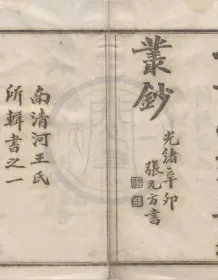 叢鈔
光緒辛卯
張元方書
南清河王氏
所輯書之一